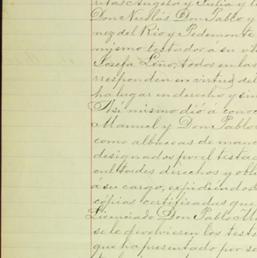 ritas Angela y Julia y l
Don Nicolás Don Pablo y
nez del Rio y Pedemonte
mismo testador a su vi
Josefa Liño, todos en las
responden en virtud del
ha lugar en derecho y sin
Así mismo dió á conoc
Manuel y Don Pablo
como albaceas de manc
designados por el testad
cultades derechos y obl
á su cargo, expidiendos
copias certificadas que
Licenciado Don Pablo M
se le devolviesen los testi
que ha presentado por se